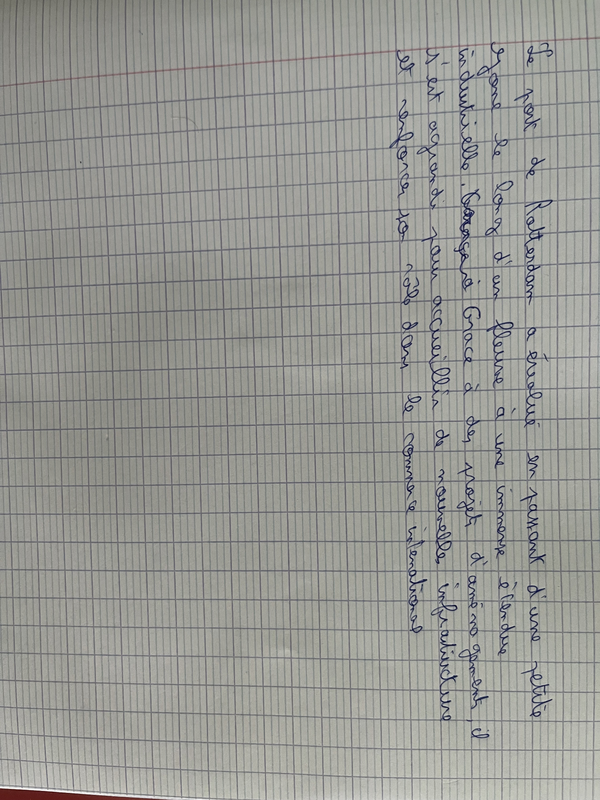 Le port de Rotterdam a évolué en passant d'une petite
zone le long d'un fleuve à une immense étendue
industrielle. Grace à des projets d'aménagement, il
s'est agrandi pour accueillir de nouvelles infrastructure
et renforcer son rôle dans le commerce international